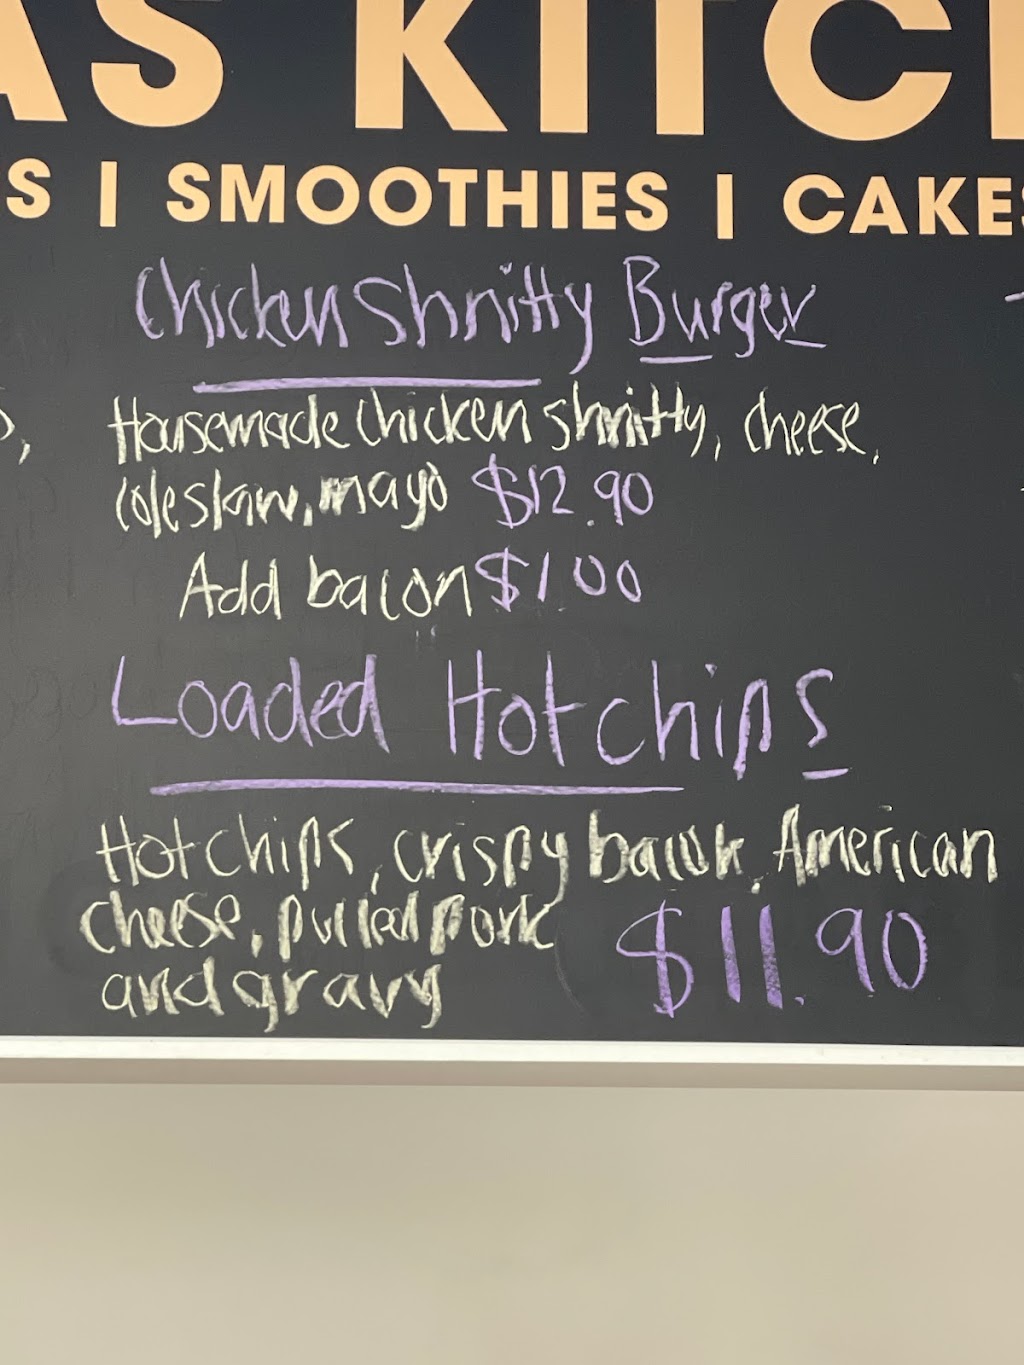 AS KITC
S | SMOOTHIES | CAKES
Chicken Shnitty Burger
Housemade chicken shnitty, cheese,
coleslaw, mayo $12.90
Add bacon $1.00
Loaded Hot chips
Hot chips, crispy bacon, American
cheese, pulled pork
and gravy $11.90